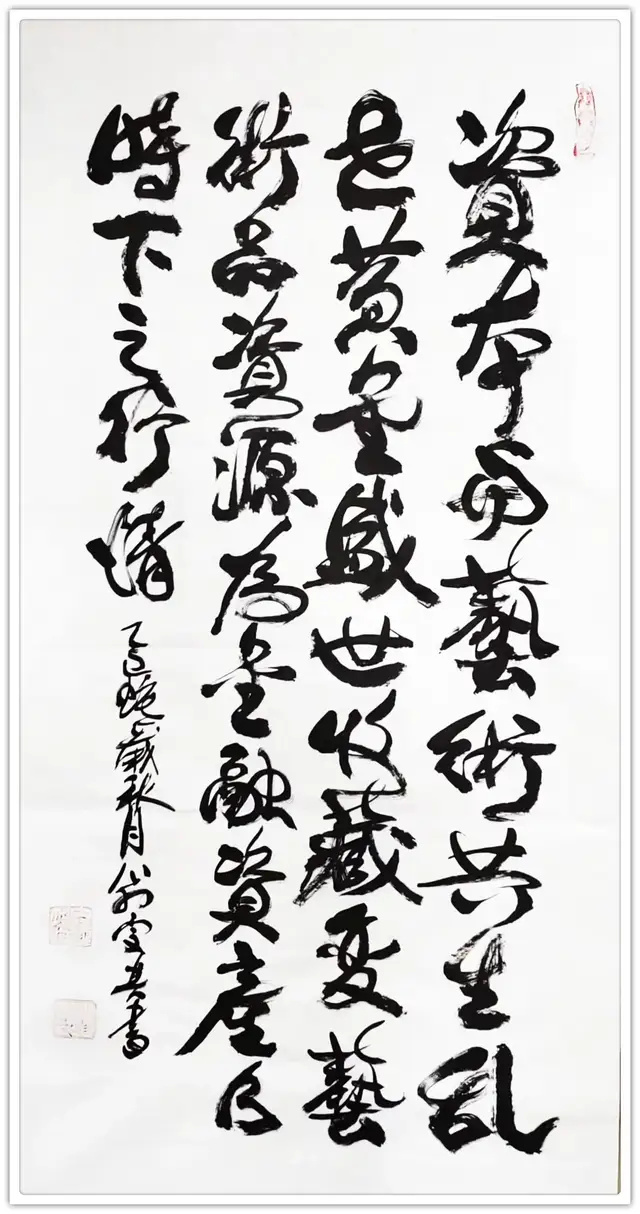 資本与藝術共生乱
世黄金盛世收藏变藝
術品資源為金融資產乃
時下之行情
乙巳蛇歲秋月翁書